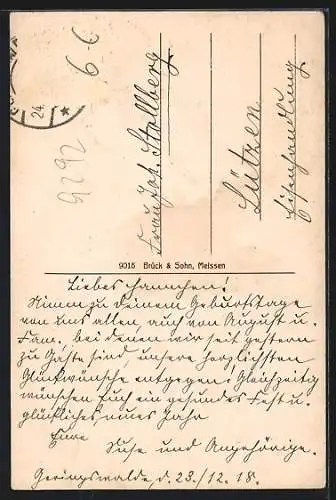 24.
6-6
9292
Frau Joh. Stollberg
Lützen
Eisenhandlung
9015 Brück & Sohn, Meissen
Liebes Hannchen!
Nimm zu Deinem Geburtstage
von uns allen, auch von August u.
Fam., bei denen wir seit gestern
zu Gaste sind, unsere herzlichsten
Glückwünsche entgegen! Gleichzeitig
wünschen Euch ein gesundes Fest u.
glückliches, neues Jahr
Eure
Suse und Angehörige.
Geringswalde, d. 23./12. 18.